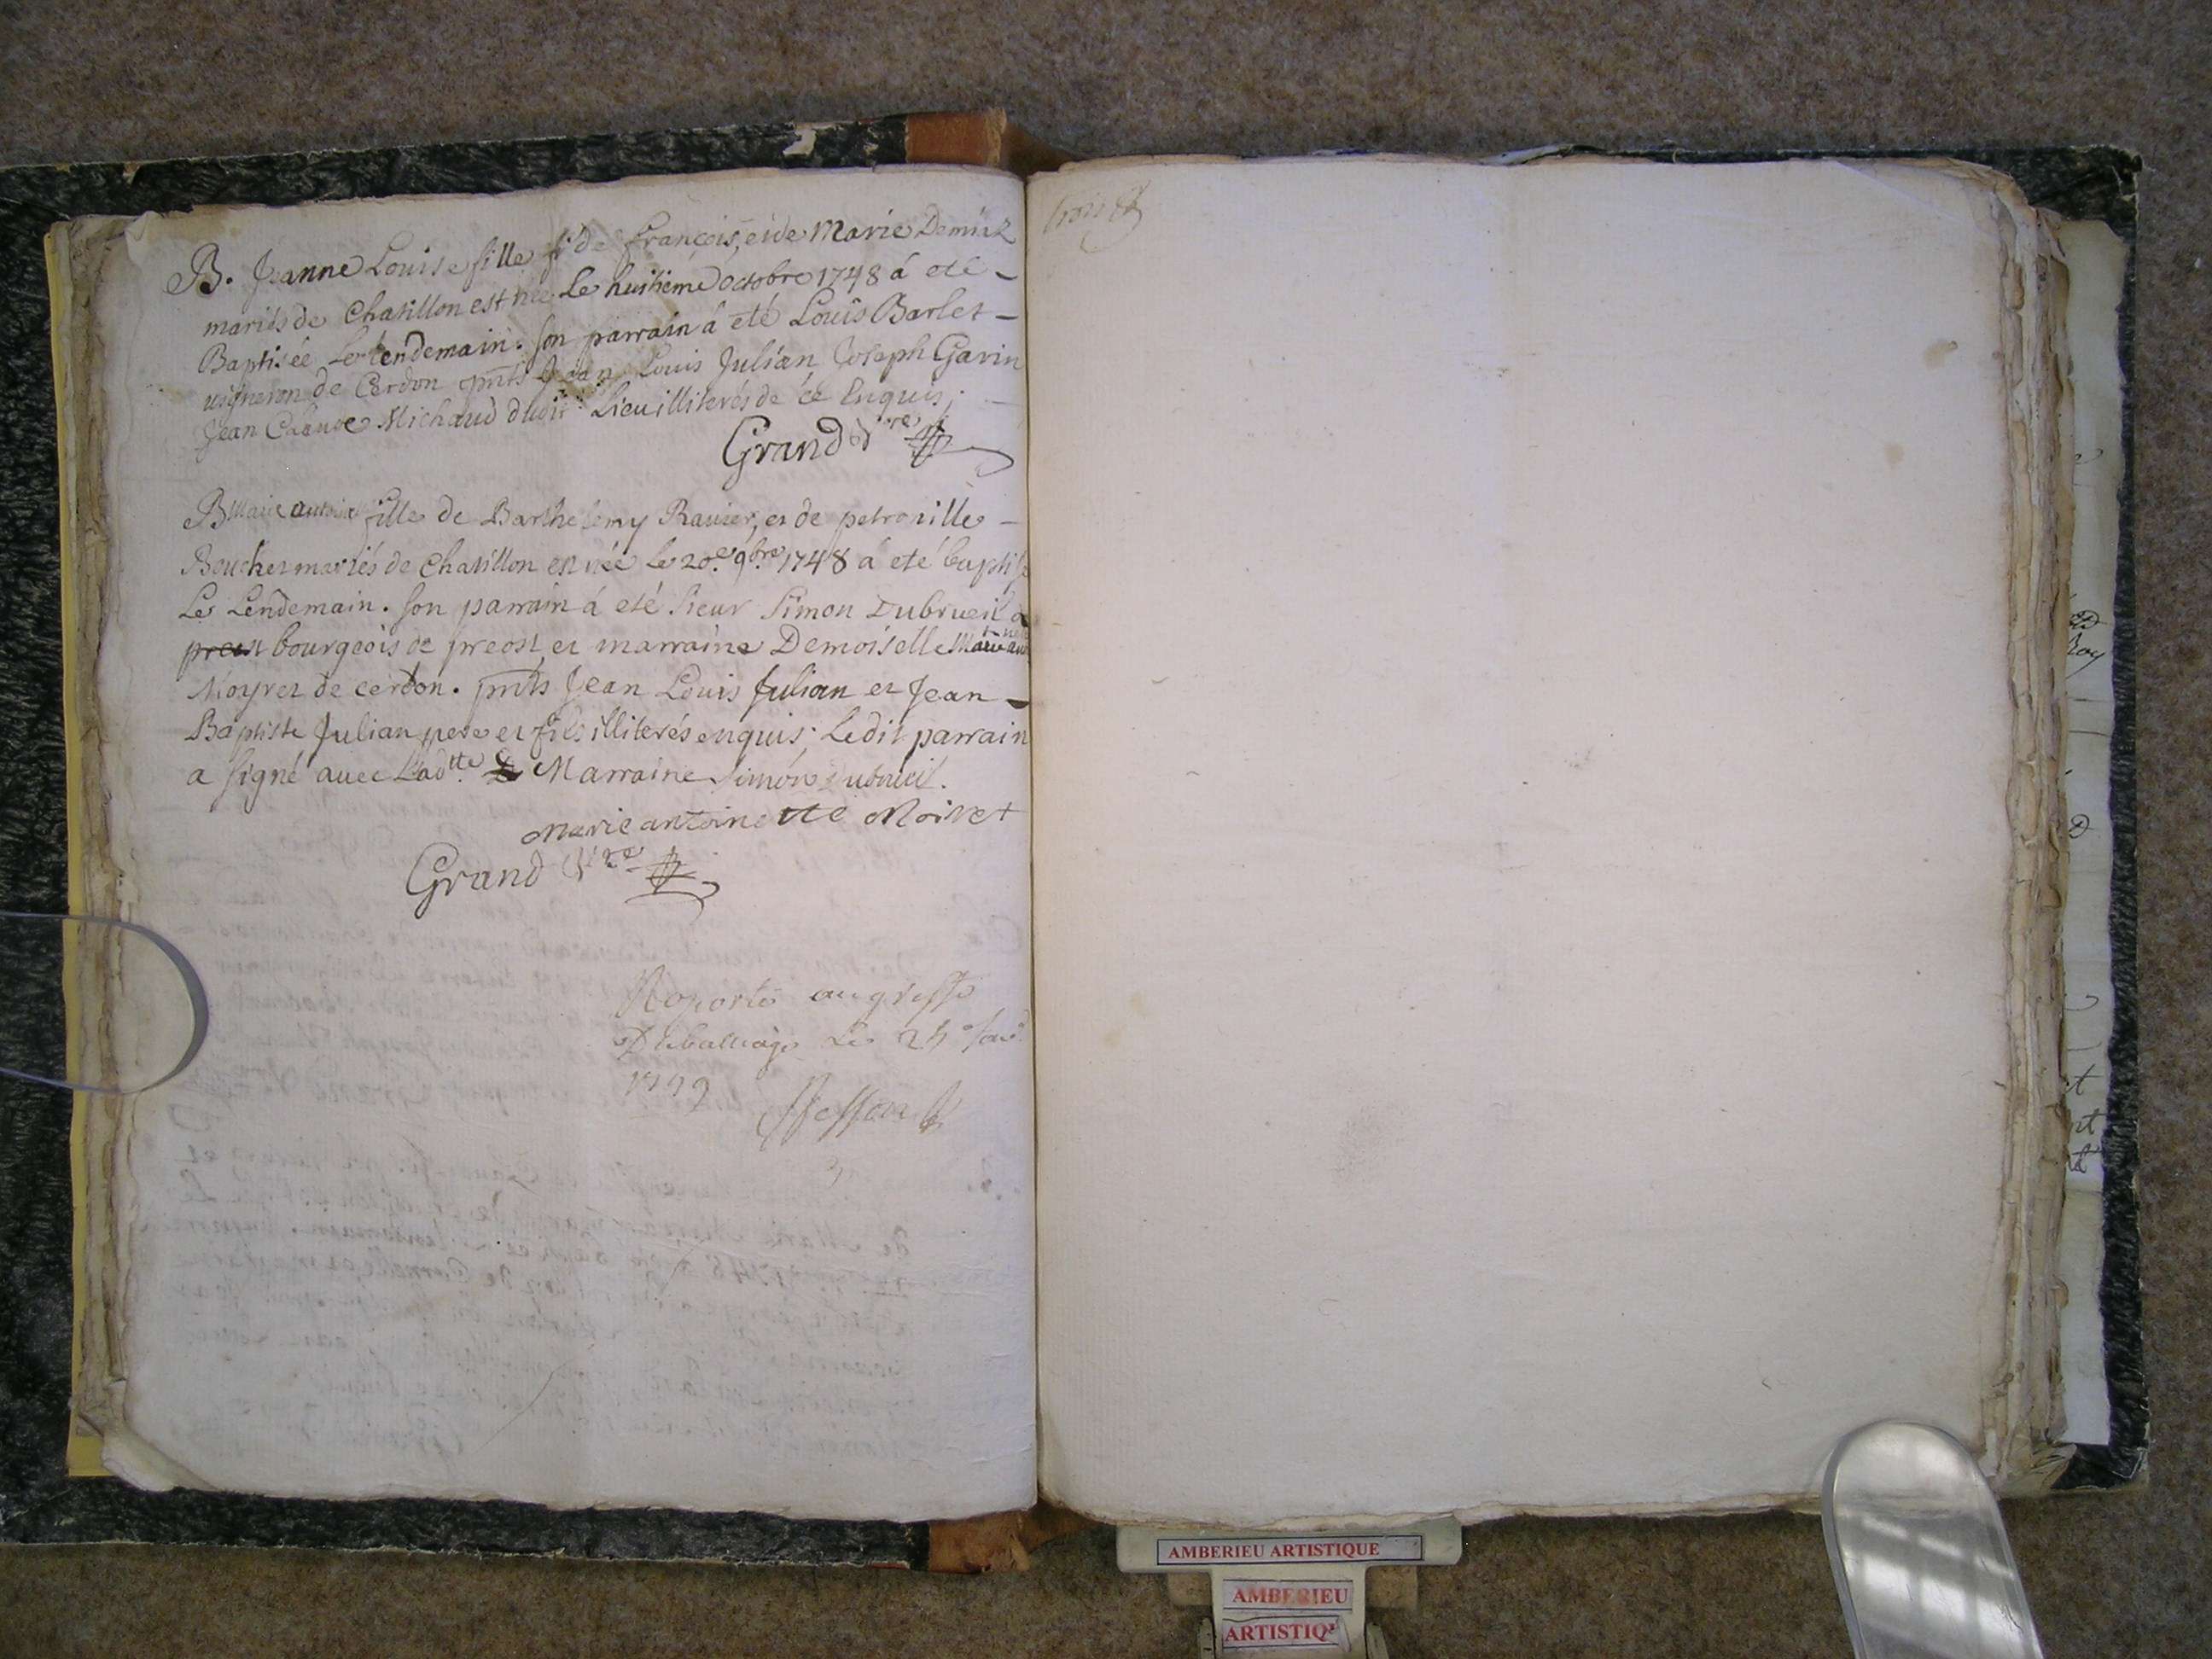 B. Jeanne Louise fille de François, et de Marie
mariés de Chatillon est née le huitieme octobre 1748 á eté
Baptisée le lendemain. son parrain á eté Louis Barlet
vigneron de Cerdon pnts Jean Louis Julian Joseph Gavin
Jean Claude Michaud dudit Lieu illiterés de ce Enquis;
Grand
B Marie fille de Barthelemy Ravier, et de petronille
Bouchet mariés de Chatillon est née le 20.e 9.bre 1748 á eté baptisé
Le Lendemain. son parrain á eté sieur simon Dubrueil
bourgeois de preost et marraine Demoiselle Marie
Moyret de cerdon. pnts Jean Louis Julian et Jean
Baptiste Julian pere et fils illiterés enquis; Ledit parrain
a signé avec Ladtte Marraine simon Dubrueil.
marie antoinette Moiret
Grand
Aporté au greffe
Du balliage Le 24
1749
AMBERIEU ARTISTIQUE
AMBERIEU
ARTISTIQ